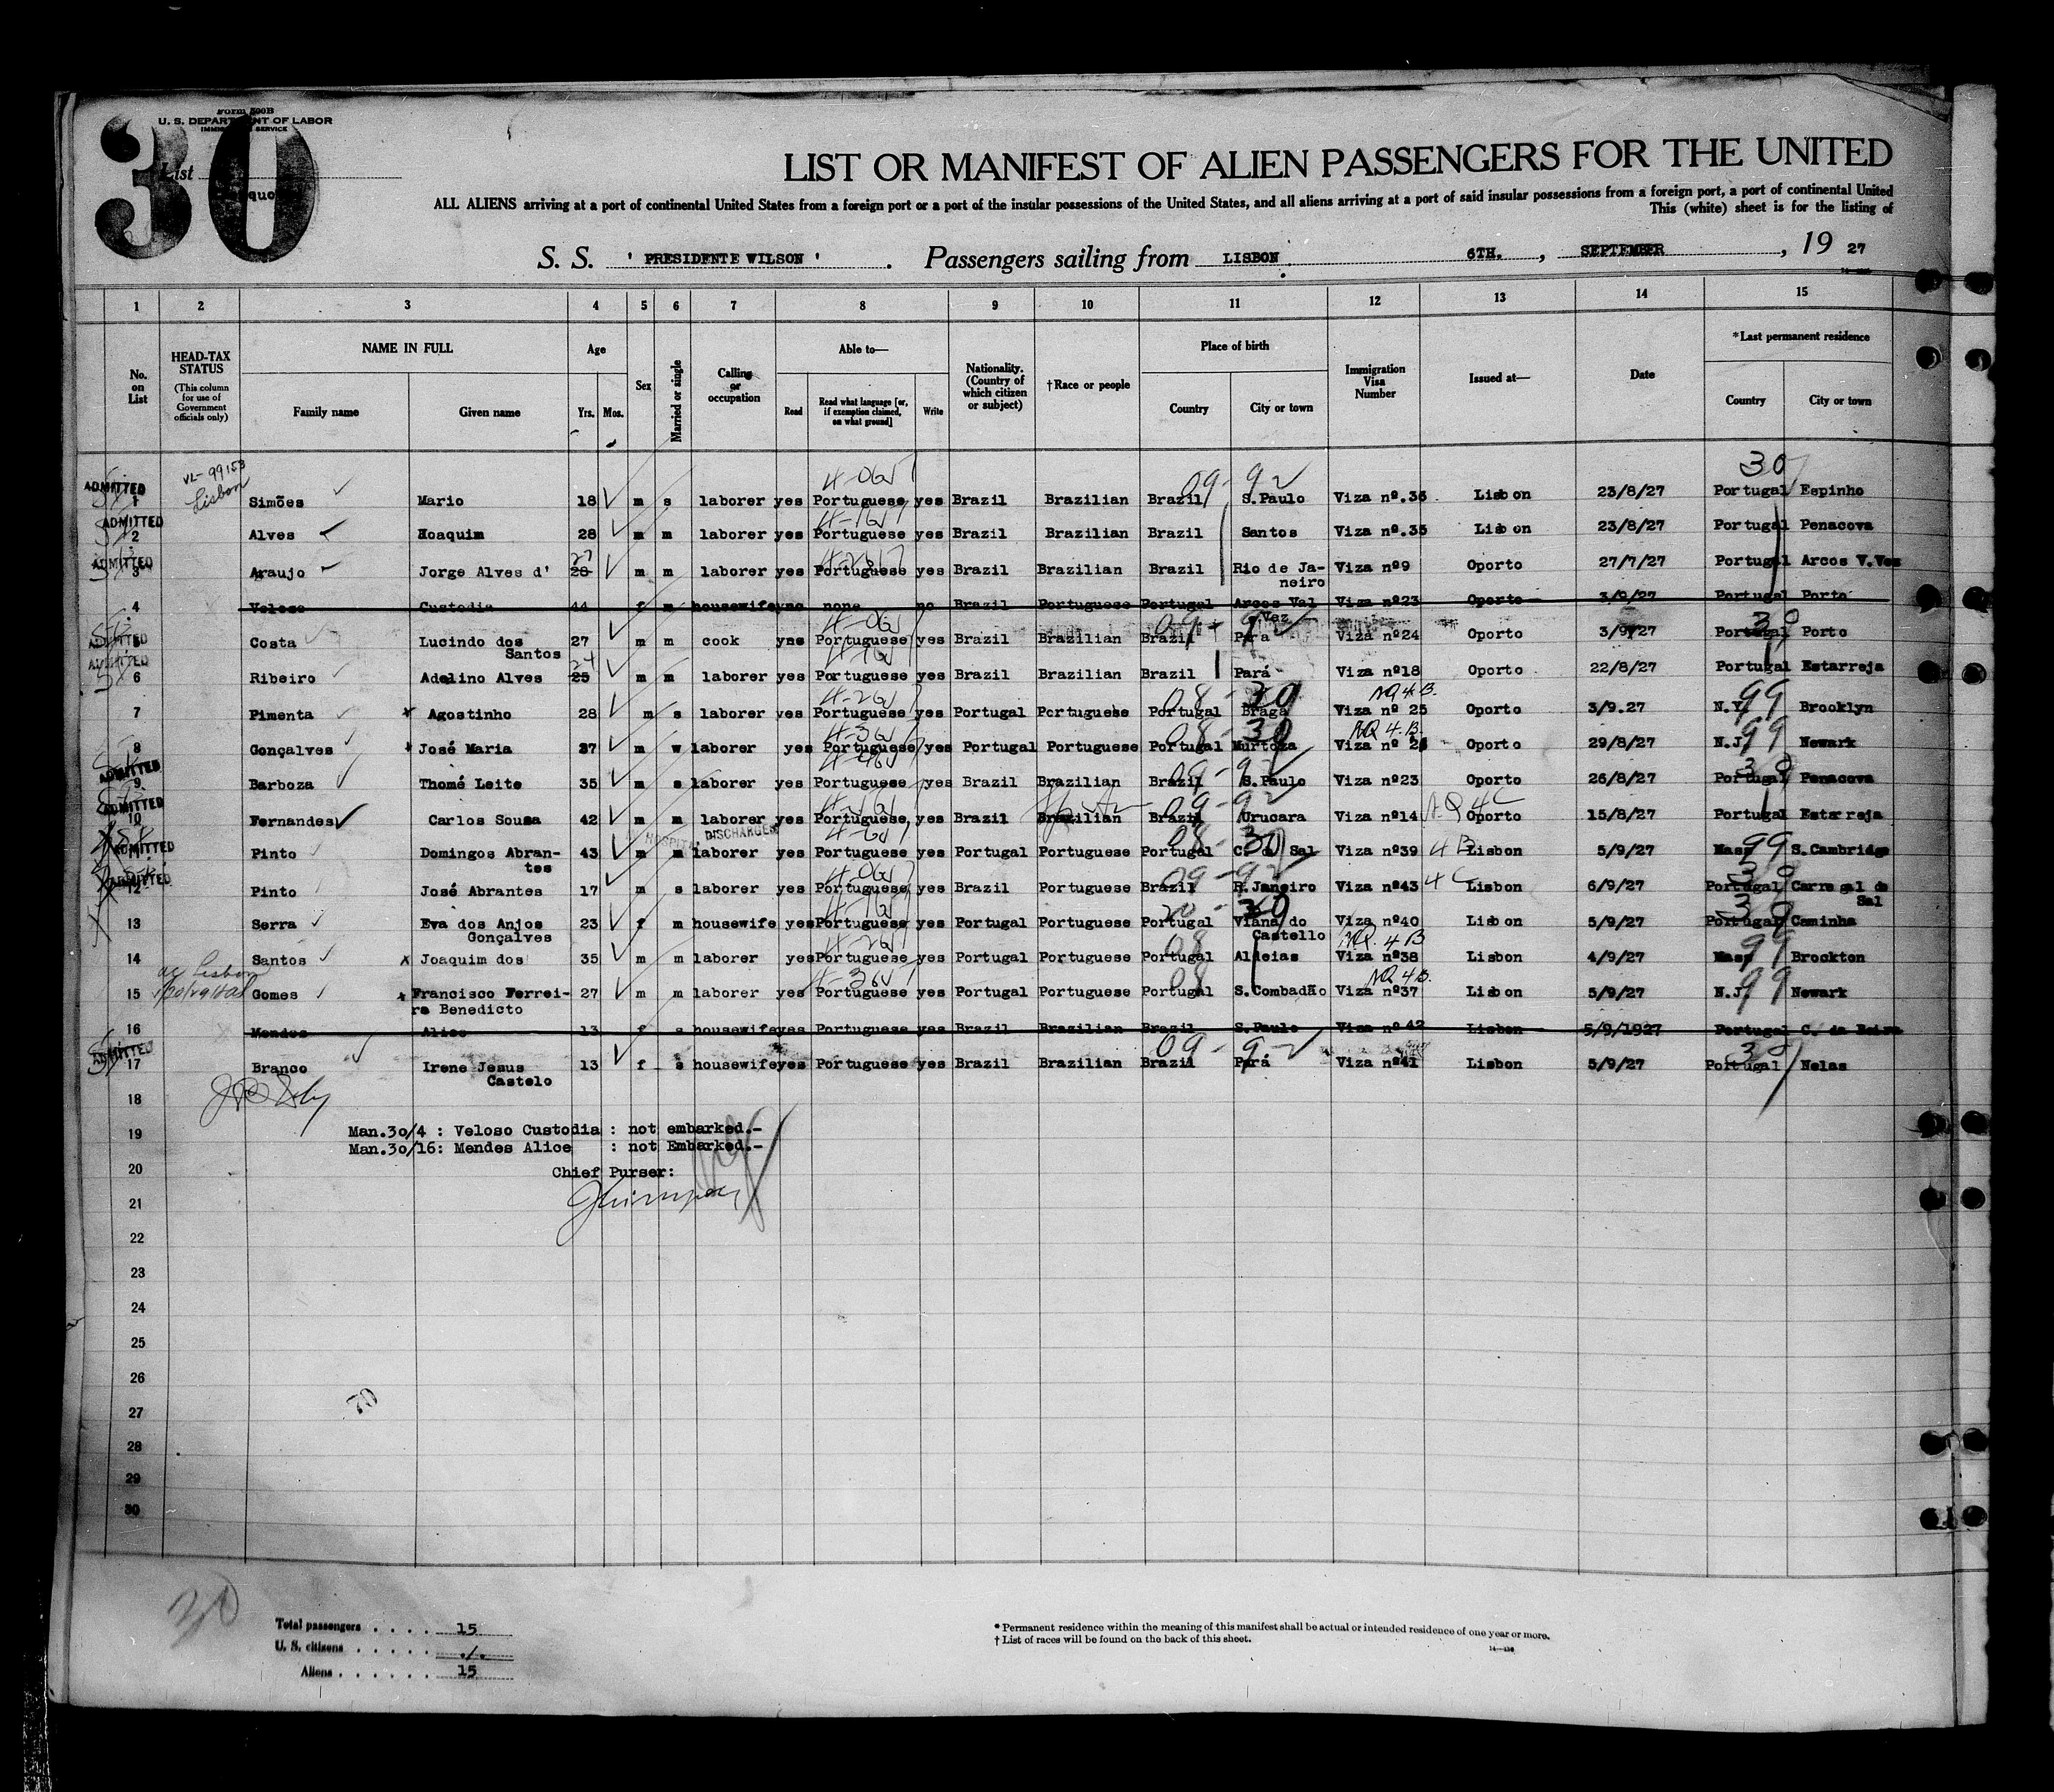 Form 500B
U. S. DEPARTMENT OF LABOR
IMMIGRATION SERVICE
30
List
LIST OR MANIFEST OF ALIEN PASSENGERS FOR THE UNITED
ALL ALIENS arriving at a port of continental United States from a foreign port or a port of the insular possessions of the United States, and all aliens arriving at a port of said insular possessions from a foreign port, a port of continental United
This (white) sheet is for the listing of
S. S. ' PRESIDENTE WILSON ' . Passengers sailing from LISBON 6TH. , SEPTEMBER , 19 27
1 2 3 4 5 6 7 8 9 10 11 12 13 14 15
No. on List
HEAD-TAX STATUS (This column for use of Government officials only)
NAME IN FULL Family name Given name
Age Yrs. Mos.
Sex
Married or single
Calling or occupation
Able to— Read Read what language [or, if exemption claimed, on what ground] Write
Nationality. (Country of which citizen or subject)
†Race or people
Place of birth Country City or town
Immigration Visa Number
Issued at—
Date
*Last permanent residence Country City or town
ADMITTED 1 Lisbon Simões Mario 18 m s laborer yes Portuguese yes Brazil Brazilian Brazil S.Paulo Viza nº.36 Lisbon 23/8/27 Portugal Espinho
ADMITTED 2 Alves Hoaquim 28 m m laborer yes Portuguese yes Brazil Brazilian Brazil Santos Viza nº.35 Lisbon 23/8/27 Portugal Penacova
ADMITTED 3 Araujo Jorge Alves d' 28 27 m m laborer yes Portuguese yes Brazil Brazilian Brazil Rio de Ja-
neiro Viza nº9 Oporto 27/7/27 Portugal Arcos V.Vez
4 Veloso Custodia 44 f m housewife no none no Brazil Portuguese Portugal Arcos Val
Vez Viza nº23 Oporto 3/9/27 Portugal Porto
ADMITTED 5 Costa Lucindo dos
Santos 27 m m cook yes Portuguese yes Brazil Brazilian Brazil Para Viza nº24 Oporto 3/9/27 Portugal Porto
ADMITTED 6 Ribeiro Adelino Alves 25 24 m m laborer yes Portuguese yes Brazil Brazilian Brazil Pará Viza nº18 Oporto 22/8/27 Portugal Estarreja
7 Pimenta Agostinho 28 m s laborer yes Portuguese yes Portugal Portuguese Portugal Braga NQ 4.B. Viza nº 25 Oporto 3/9.27 N.Y. Brooklyn
8 Gonçalves José Maria 37 m w laborer yes Portuguese yes Portugal Portuguese Portugal Murtoza NQ 4.B. Viza nº Oporto 29/8/27 N.J. Newark
ADMITTED 9 Barboza Thomé Leite 35 m s laborer yes Portuguese yes Brazil Brazilian Brazil S.Paulo Viza nº23 Oporto 26/8/27 Portugal Penacova
ADMITTED 10 Fernandes Carlos Sousa 42 m m laborer yes Portuguese yes Brazil Brazilian Brazil Urucara Viza nº14 NQ 4C Oporto 15/8/27 Portugal Estarreja
HOSPITAL DISCHARGED
ADMITTED 11 Pinto Domingos Abran-
tes 43 m m laborer yes Portuguese yes Portugal Portuguese Portugal C. do Sal Viza nº39 4 B Lisbon 5/9/27 Mass S.Cambridge
ADMITTED 12 Pinto José Abrantes 17 m s laborer yes Portuguese yes Brazil Portuguese Brazil R.Janeiro Viza nº43 4 C Lisbon 6/9/27 Portugal Carregal do
Sal
13 Serra Eva dos Anjos
Gonçalves 23 f m housewife yes Portuguese yes Portugal Portuguese Portugal Viana do
Castello Viza nº40 Lisbon 5/9/27 Portugal Caminha
14 Santos Joaquim dos 35 m m laborer yes Portuguese yes Portugal Portuguese Portugal Aldeias NQ. 4 B Viza nº38 Lisbon 4/9/27 Mass Brockton
15 Gomes Francisco Ferrei-
ra Benedicto 27 m m laborer yes Portuguese yes Portugal Portuguese Portugal S.Combadão NQ 4B. Viza nº37 Lisbon 5/9/27 N.J. Newark
16 Mendes Alice 13 f s housewife yes Portuguese yes Brazil Brazilian Brazil S.Paulo Viza nº42 Lisbon 5/9/1927 Portugal C. da Beira
ADMITTED 17 Branco Irene Jesus
Castelo 13 f s housewife yes Portuguese yes Brazil Brazilian Brazil Pará Viza nº41 Lisbon 5/9/27 Portugal Nelas
18
19 Man.30/4 : Veloso Custodia : not embarked.-
Man.30/16: Mendes Alice : not Embarked.-
20 Chief Purser:
21
22
23
24
25
26
27 70
28
29
30
30
Total passengers . . . . 15
U. S. citizens . . . . . ./.
Aliens . . . . . . 15
* Permanent residence within the meaning of this manifest shall be actual or intended residence of one year or more.
† List of races will be found on the back of this sheet.